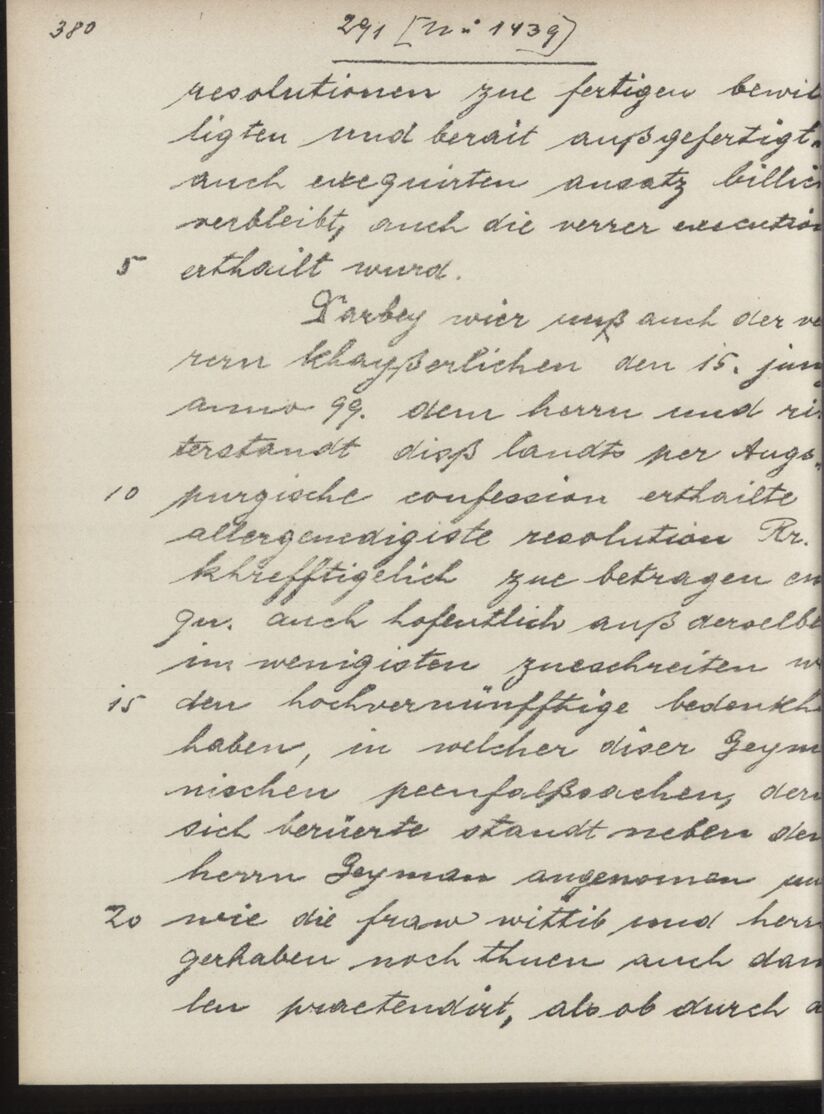 380
291 [N: 1439]
resolutionen zue fertigen bewil
ligten und berait außgefertigt.
auch exequirten ansatz billic
verbleibt, auch die verrer execution
5 erthailt wurd.
Darbey wier unß auch der ve
rern khayßerlichen den 15. jun
anno 99. dem herrn und ri
terstandt diß landts per Augs
10 purgische confession erthailte
allergenedigiste resolution Kr.
khrefftigelich zue betragen en
gn. auch hofentlich auß derselbe
im wenigisten zueschreiten w
15 den hochvernünfftige bedenkh
haben, in welcher diser Geym
nischen peenfalßsachen, der
sich berüerte standt neben der
herrn Geyman angenomen un
20 wie die fraw wittib und herr
gerhaben noch thuen auch dan
len praetendirt, als ob durch a